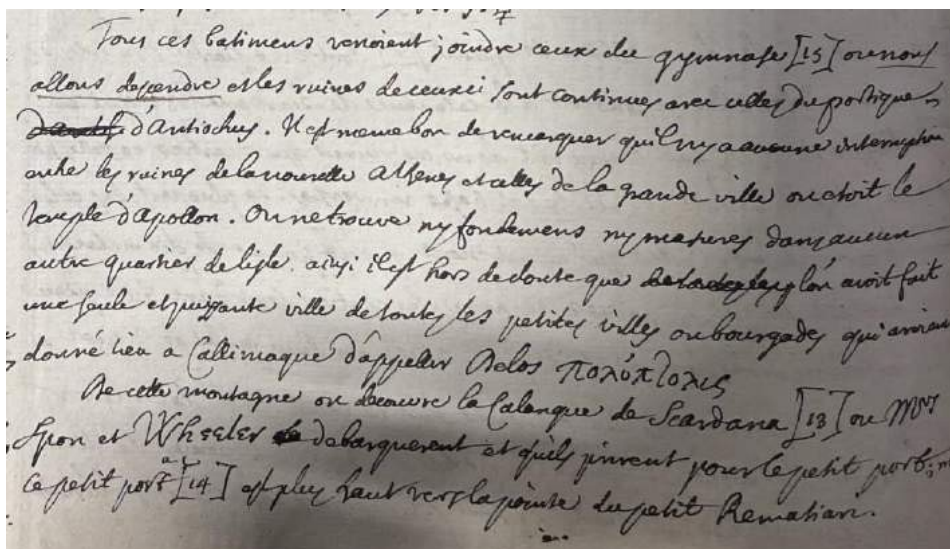 Tous ces batimens venoient joindre ceux du gymnase [15] ou nous
allons descendre et les ruines de ceuxci sont continues avec celles du portique
d'Antiochus. Il est meme bon de remarquer quil ny a aucune interruption
entre les ruines de la nouvelle Athenes et celles de la grande ville ou etoit le
temple d'Apollon. On ne trouve ny fondemens ny masures dans aucun
autre quartier de lisle. ainsi il est hors de doute que lon avoit fait
une seule et puissante ville de toutes les petites villes ou bourgades qui avoient
donné lieu a Callimaque d'appeller Delos πολύπτολις
De cette montagne on decouvre la Calanque de Scardana [13] ou Mrs
Spon et Wheeler debarquerent et quils prirent pour le petit port:
ce petit port [14] est plus haut vers la pointe du petit Rematiari.